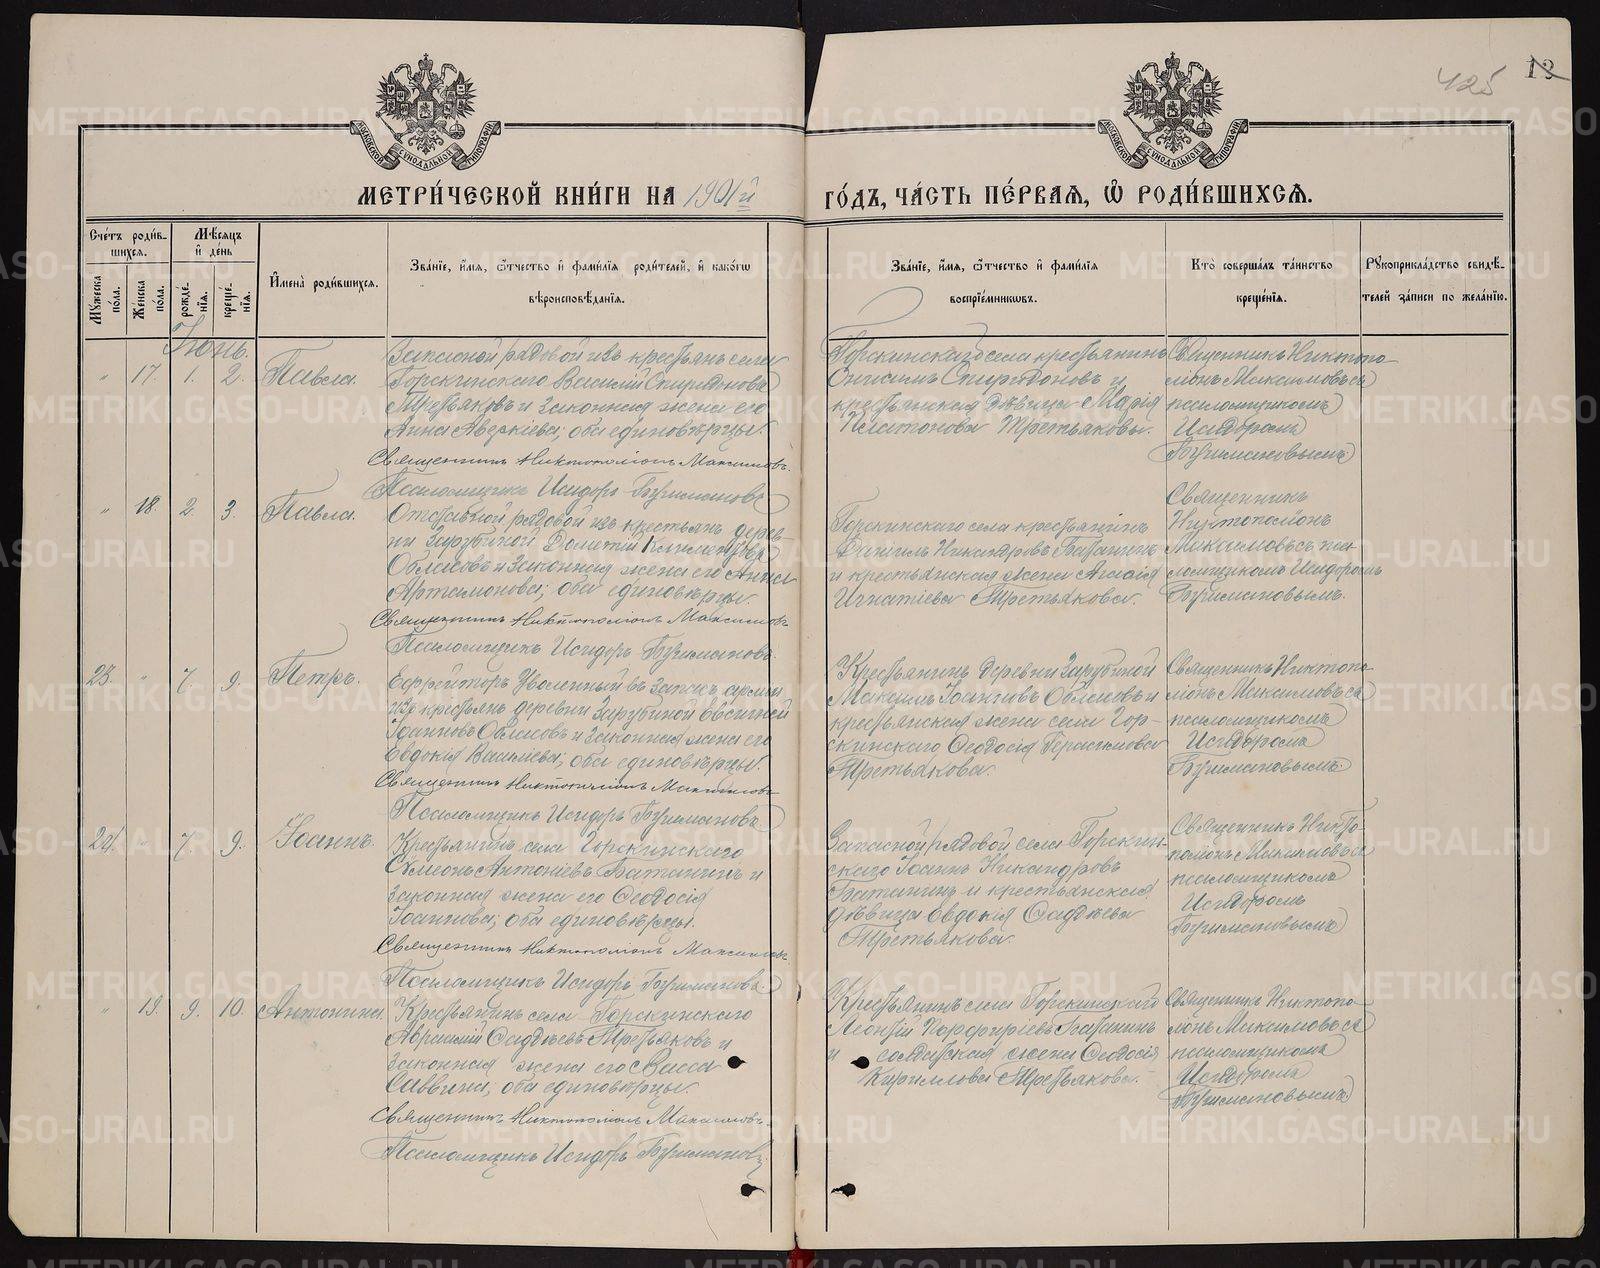 425
13
МОСКОВСКОЙ СѴНОДАЛЬНОЙ ТИПОГРАФІИ
МОСКОВСКОЙ СѴНОДАЛЬНОЙ ТИПОГРАФІИ
МЕТРИ́ЧЕСКОЙ КНИ́ГИ НА 1901й ГО́ДЪ, ЧА́СТЬ ПЕ́РВАЯ, Ѡ РОДИ́ВШИХСЯ.
Сче́тъ роди́вшихся.
Мѣ́сяцъ и де́нь
Мꙋ́жеска по́ла.
Же́нска по́ла.
рожде́нїя.
креще́нїя.
И́мена̀ роди́вшихся.
Зва́нїе, и́мя, ѻ́тчество и фами́лїя роди́телей, и како́гѡ
вѣроисповѣ́данїя.
Зва́нїе, и́мя, ѻ́тчество и фами́лїя
воспрїе́мникѡвъ.
Кто̀ соверша́лъ та́инство
креще́нїя.
Рꙋкоприкла́дство свидѣ́-
телей за́писи по жела́нїю.
Іюнь.
" 17. 1. 2. Павла.
Запасной рядовой изъ крестьянъ села
Горскинскаго Василій Спиридоновъ
Третьяковъ и законная жена его
Анна Аверкіева; оба единовѣрцы.
Священникъ Никтополіонъ Максимовъ
Псаломщикъ Исидоръ Бузимановъ
Горскинскаго села крестьянинъ
Онисимъ Спиридоновъ и
крестьянская дѣвица Марія
Платонова Третьяковы.
Священникъ Никтопо-
ліонъ Максимовъ съ
псаломщикомъ
Исидоромъ
Бузимановымъ
" 18. 2. 3. Павла.
Отставной рядовой изъ крестьянъ дерев-
ни Зарубиной Дометій Климентовъ
Обласовъ и законная жена его Анна
Артамонова; оба единовѣрцы.
Священникъ Никтополіонъ Максимовъ
Псаломщикъ Исидоръ Бузимановъ.
Горскинскаго села крестьянинъ
Даніилъ Никандровъ Батанинъ
и крестьянская жена Агаѳія
Игнатіева Третьякова.
Священникъ
Никтополіонъ
Максимовъ съ пса-
ломщикомъ Исидоромъ
Бузимановымъ.
23. " 7. 9. Петръ.
Ефрейторъ уволенный въ запасъ арміи
изъ крестьянъ деревни Зарубиной Евсигней
Іоанновъ Обласовъ и законная жена его
Евдокія Василіева; оба единовѣрцы.
Священникъ Никтополіонъ Максимовъ
Псаломщикъ Исидоръ Бузимановъ.
Крестьянинъ деревни Зарубиной
Максимъ Іоанновъ Обласовъ и
крестьянская жена села Гор-
скинскаго Ѳеодосія Герасимова
Третьякова.
Священникъ Никтопо-
ліонъ Максимовъ съ
псаломщикомъ
Исидоромъ
Бузимановымъ
24. " 7. 9. Іоаннъ.
Крестьянинъ села Горскинскаго
Сѵмеонъ Антоніевъ Батанинъ и
законная жена его Ѳеодосія
Іоаннова; оба единовѣрцы.
Священникъ Никтополіонъ Максимовъ
Псаломщикъ Исидоръ Бузимановъ.
Запасной рядовой села Горскин-
скаго Іоаннъ Никандровъ
Батанинъ и крестьянская
дѣвица Евдокія Ѳаддѣева
Третьякова.
Священникъ Никто-
поліонъ Максимовъ съ
псаломщикомъ
Исидоромъ
Бузимановымъ
" 19. 9. 10. Антонина.
Крестьянинъ села Горскинскаго
Авраамій Ѳаддѣевъ Третьяковъ и
законная жена его Васса
Саввина; оба единовѣрцы.
Священникъ Никтополіонъ Максимовъ
Псаломщикъ Исидоръ Бузимановъ
Крестьянинъ села Горскинскаго
Леонтій Порфиріевъ Батанинъ
и солдатская жена Ѳеодосія
Кириллова Третьякова.
Священникъ Никтопо-
ліонъ Максимовъ съ
псаломщикомъ
Исидоромъ
Бузимановымъ
METRIKI.GASO-URAL.RU